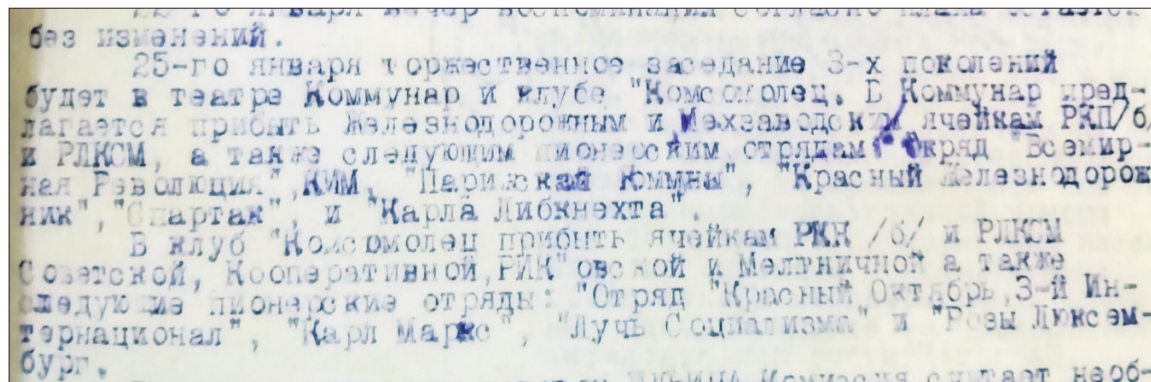 22-го января вечер воспоминания согласно плана остается
без изменений.
25-го января торжественное заседание 3-х поколений
будет в театре Коммунар и клубе "Комсомолец. В Коммунар пред-
лагается прибыть Железнодорожным и Мехзаводским ячейкам РКП/б/
и РЛКСМ, а также следующим пионерским отрядам Окряд "Всемир-
ная Революция",КИМ, "Парижской Коммуны", "Красный Железнодорож
ник","Спартак", и "Карла Либкнехта".
В клуб "Комсомолец прибыть ячейкам РКП /б/ и РЛКСМ
Советской, Кооперативной,РИК"овской и Мельничной а также
следующие пионерские отряды: "Отряд "Красный Октябрь,3-й Ин-
тернационал", "Карл Маркс", "Лучь Социализма" и "Розы Люксем-
бург.
Комиссия считает необ-